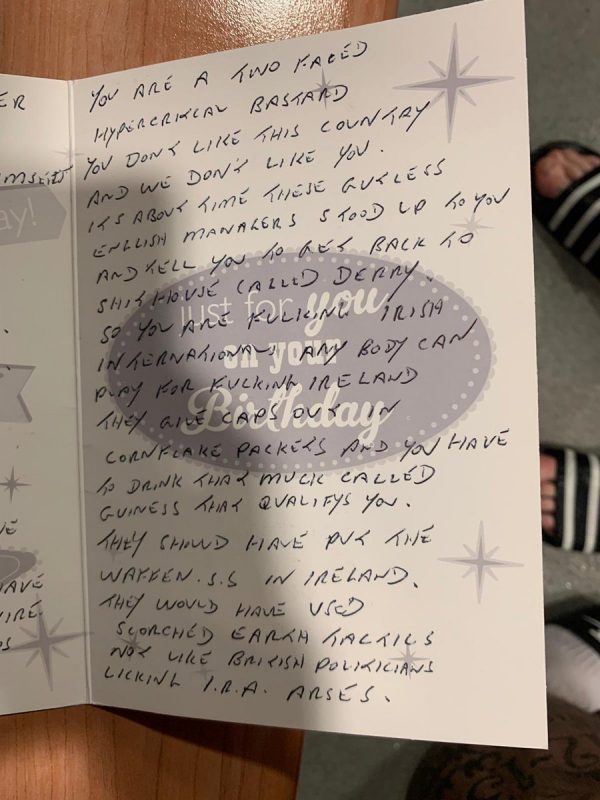 ER
ay!
YOU ARE A TWO FACED
HYPERCRITICAL BASTARD
YOU DONT LIKE THIS COUNTRY
AND WE DON'T LIKE YOU.
ITS ABOUT TIME THESE GUTLESS
ENGLISH MANAGERS STOOD UP TO YOU
AND TELL YOU TO GET BACK TO
SHITHOUSE CALLED DERRY.
just for you
SO YOU ARE FUCKING IRISH
INTERNATIONAL ANY BODY CAN
on your
PLAY FOR FUCKING IRELAND
Birthday
THEY GIVE CAPS OUT IN
CORNFLAKE PACKETS AND YOU HAVE
TO DRINK THAT MUCK CALLED
GUINESS THAT QUALIFYS YOU.
THEY SHOULD HAVE PUT THE
WAFFEN.S.S IN IRELAND.
THEY WOULD HAVE USED
SCORCHED EARTH TACTICS
NOT LIKE BRITISH POLITICIANS
LICKING I.R.A. ARSES.